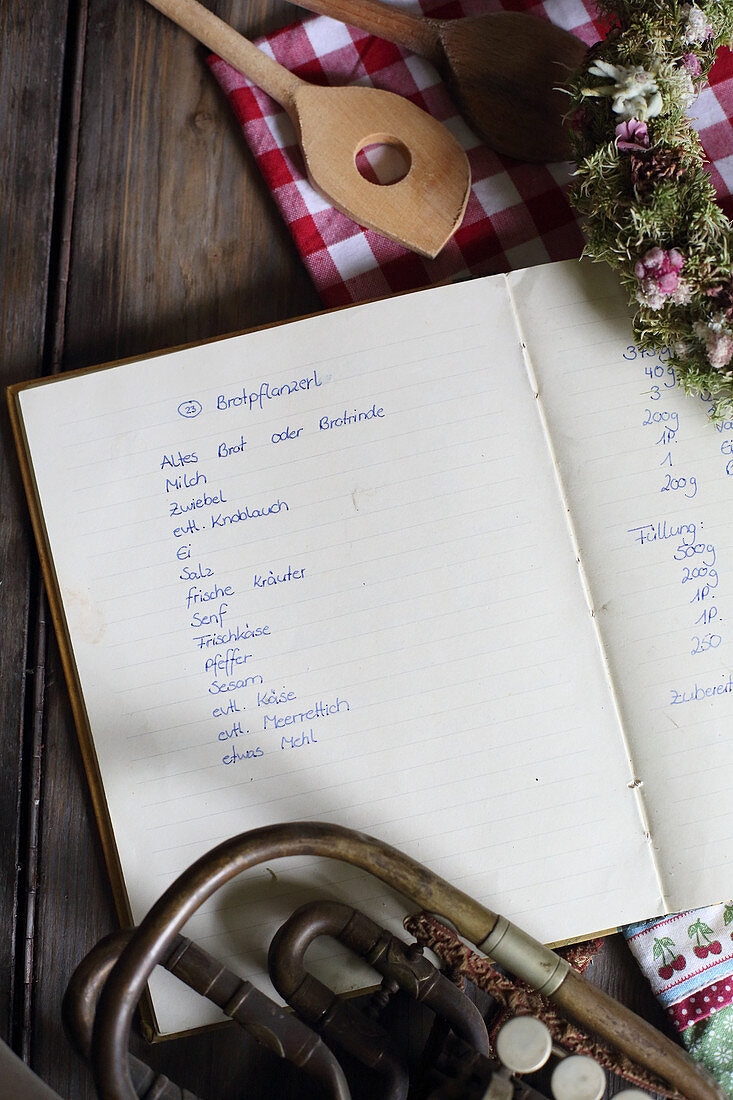 23 Brotpflanzerl
Altes Brot oder Brotrinde
Milch
Zwiebel
evtl. Knoblauch
Ei
Salz
frische Kräuter
Senf
Frischkäse
Pfeffer
Sesam
evtl. Käse
evtl. Meerrettich
etwas Mehl
375g
40g
3
200g
1P.
1
200g
Füllung:
500g
200g
1P.
1P.
250
Zubereit